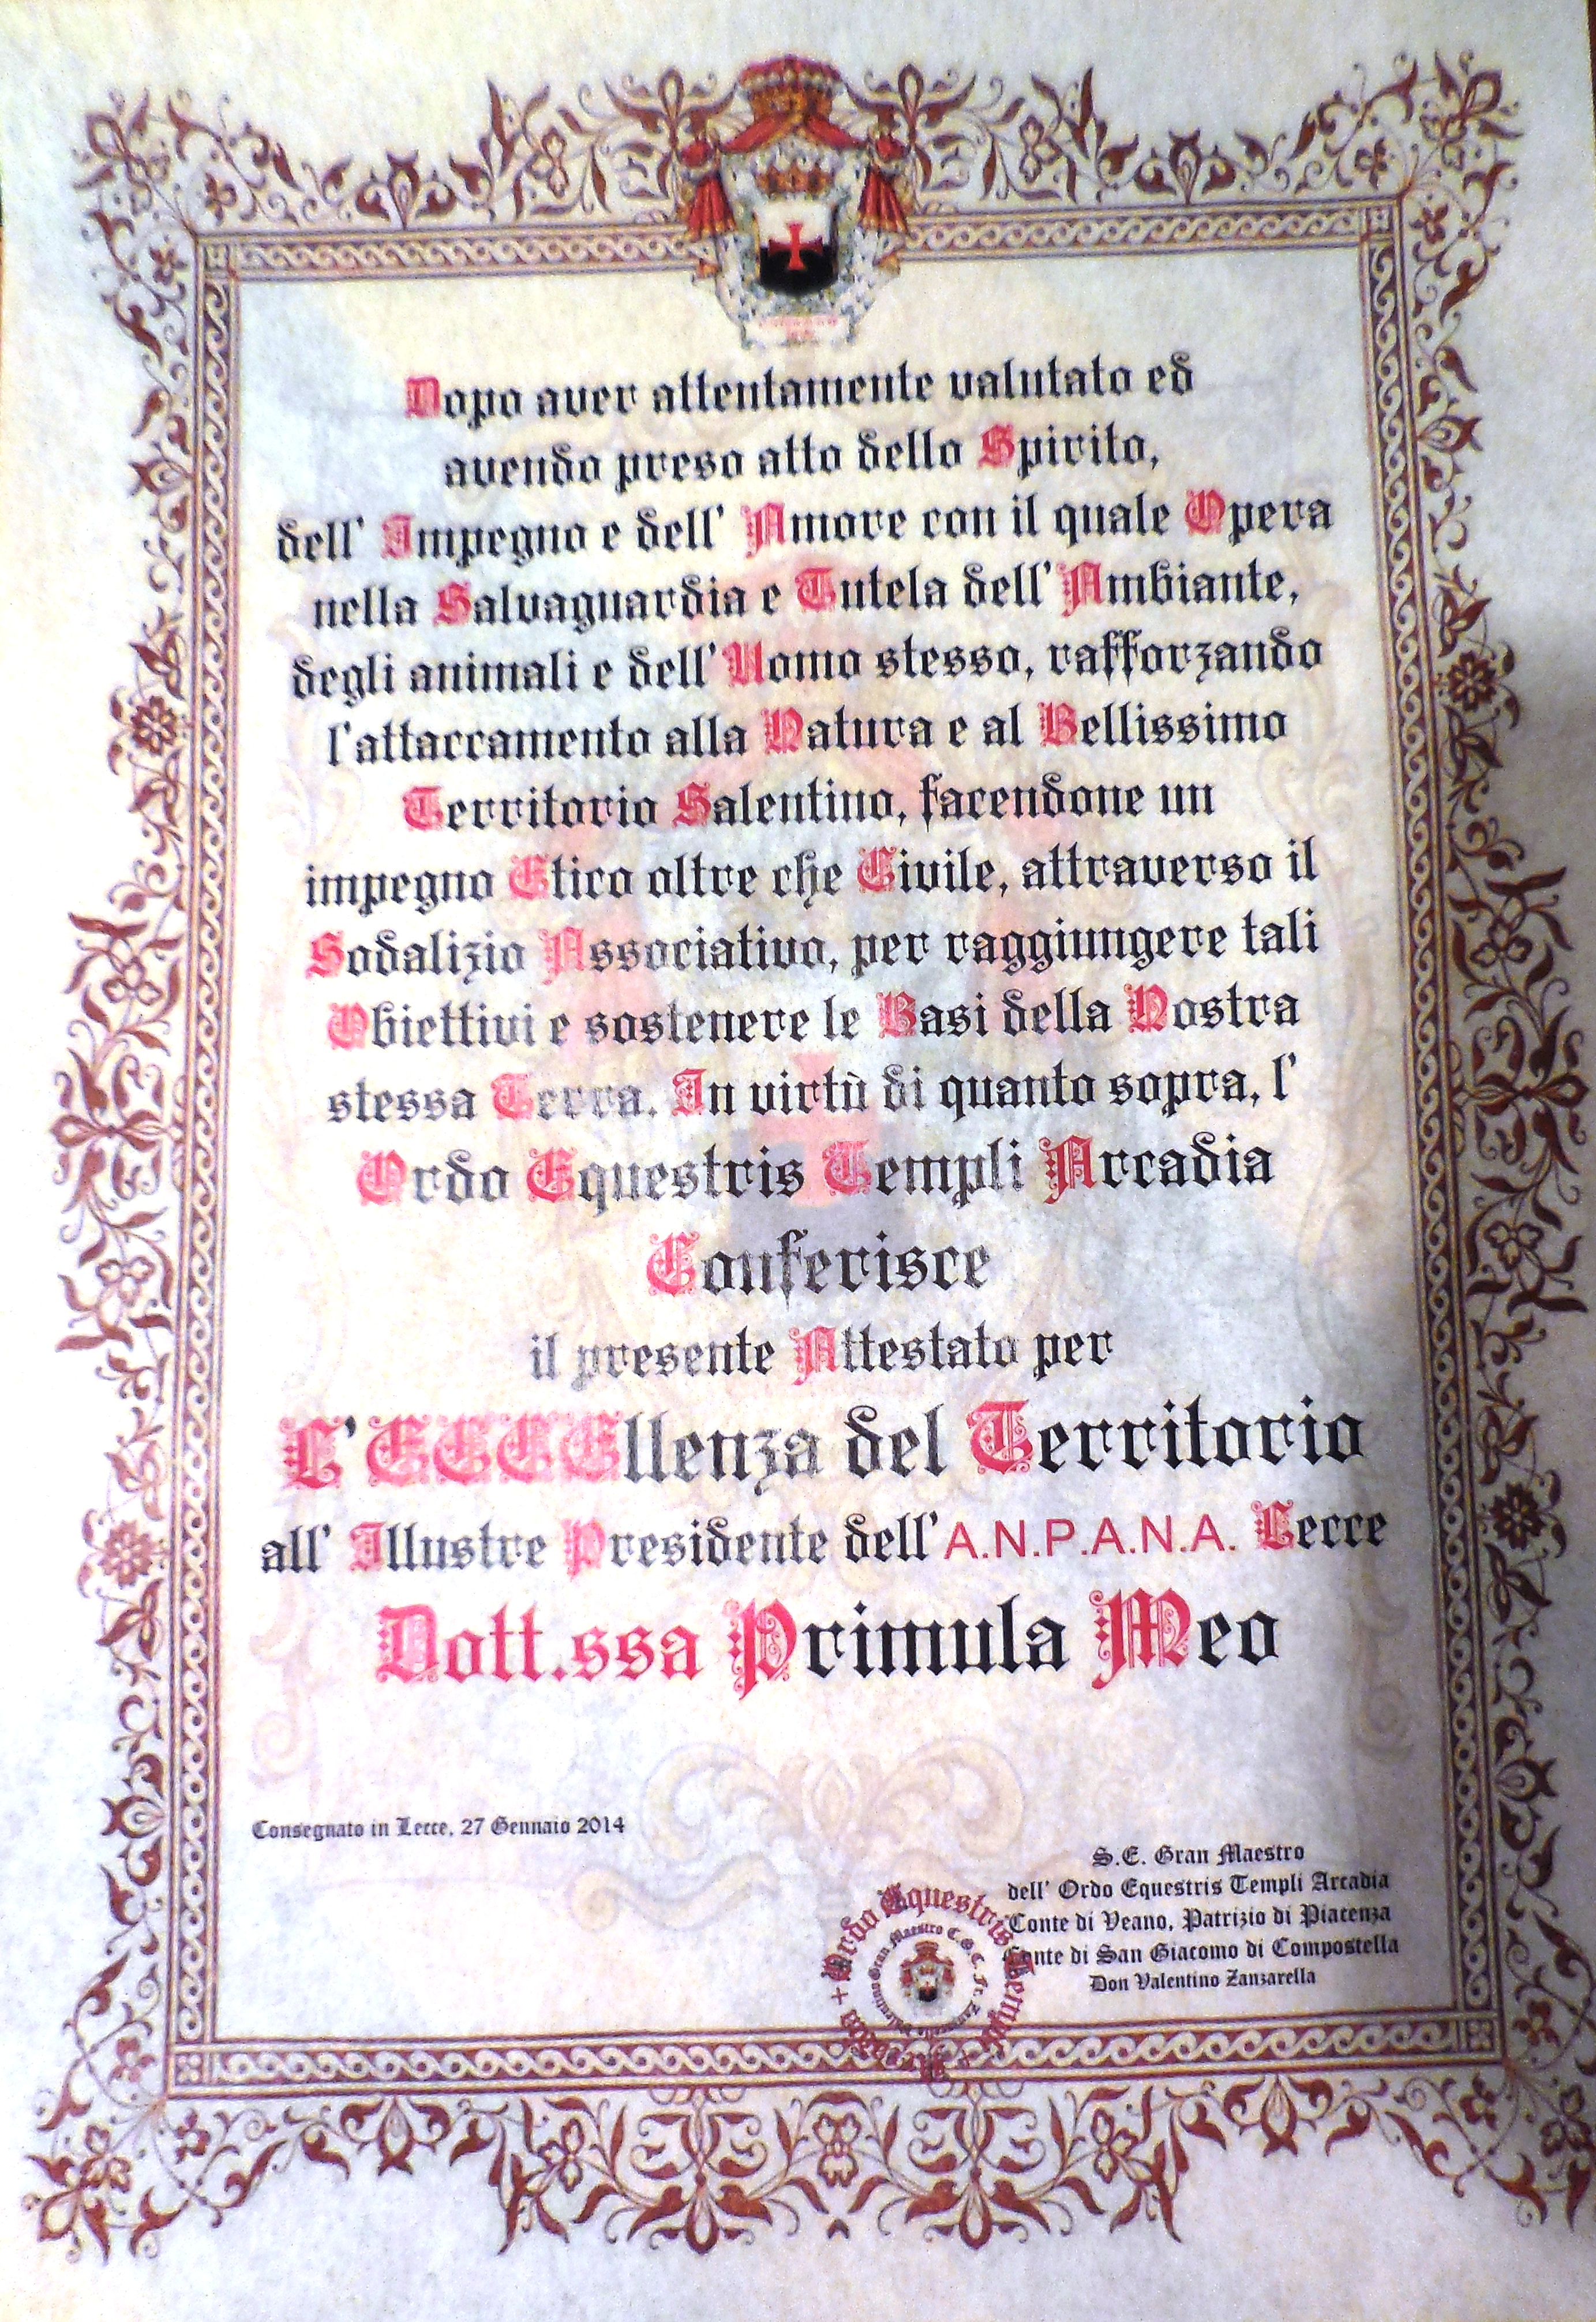 Dopo aver attentamente valutato ed
avendo preso atto dello Spirito,
dell' Impegno e dell' Amore con il quale Opera
nella Salvaguardia e Tutela dell'Ambiante,
degli animali e dell'Uomo stesso, rafforzando
l'attaccamento alla Natura e al Bellissimo
Territorio Salentino, facendone un
impegno Etico oltre che Civile, attraverso il
Sodalizio Associativo, per raggiungere tali
Obiettivi e sostenere le Basi della Nostra
stessa Terra. In virtù di quanto sopra, l'
Ordo Equestris Templi Arcadia
Conferisce
il presente Attestato per
L'ECCEllenza del Territorio
all' Illustre Presidente dell'A.N.P.A.N.A. Lecce
Dott.ssa Primula Meo
Consegnato in Lecce, 27 Gennaio 2014
S.E. Gran Maestro
dell' Ordo Equestris Templi Arcadia
Conte di Veano, Patrizio di Piacenza
Conte di San Giacomo di Compostella
Don Valentino Zanzarella
Ordo Equestris Templi Arcadia
Gran Maestro